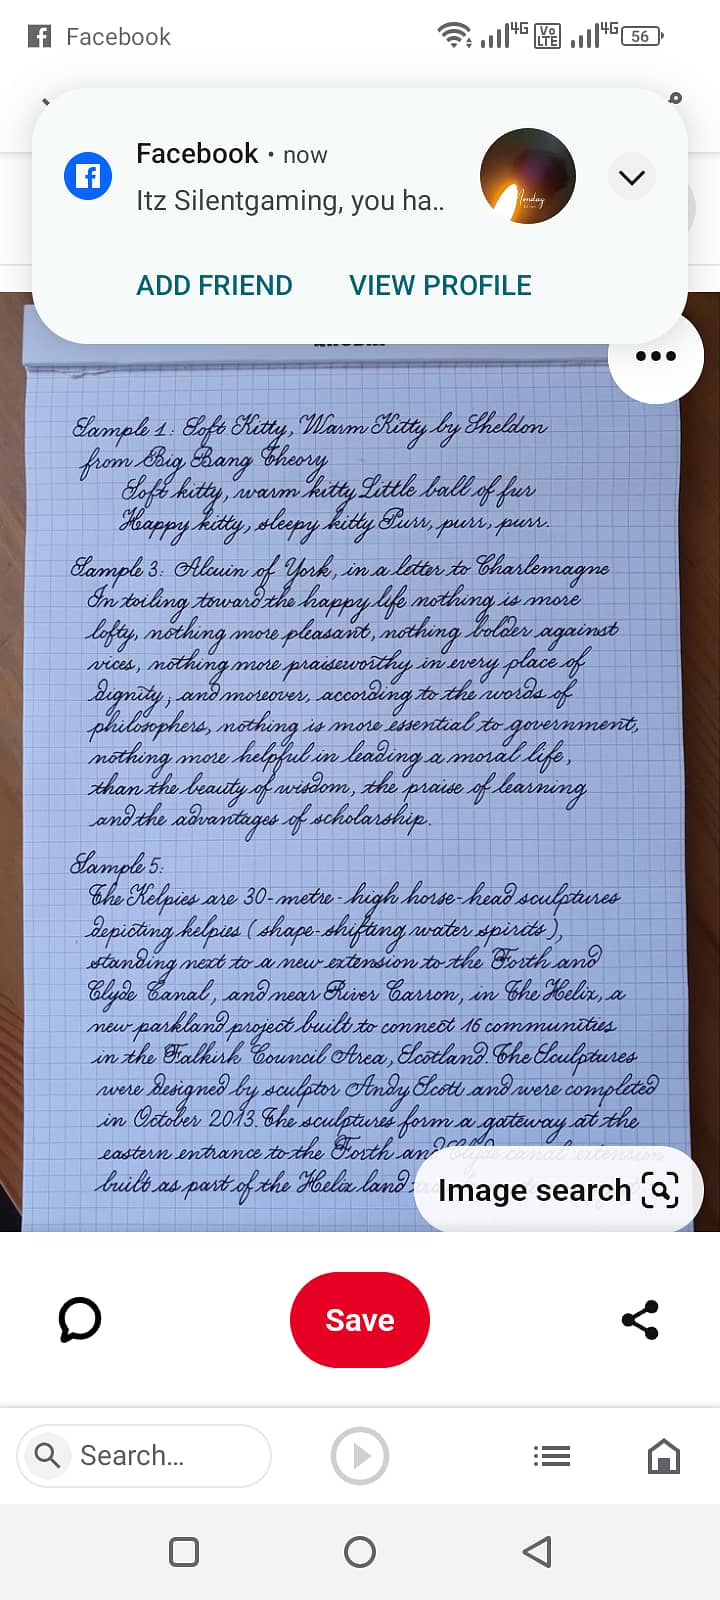 Facebook
4G
Vo LTE
4G
56
Facebook • now
Itz Silentgaming, you ha..
Monday
ADD FRIEND VIEW PROFILE
Sample 1: Soft Kitty, Warm Kitty by Sheldon
from Big Bang Theory
Soft kitty, warm kitty Little ball of fur
Happy kitty, sleepy kitty Purr, purr, purr.
Sample 3: Alcuin of York, in a letter to Charlemagne
In toiling toward the happy life nothing is more
lofty, nothing more pleasant, nothing bolder against
vices, nothing more praiseworthy in every place of
dignity; and moreover, according to the words of
philosophers, nothing is more essential to government,
nothing more helpful in leading a moral life,
than the beauty of wisdom, the praise of learning
and the advantages of scholarship.
Sample 5:
The Kelpies are 30-metre-high horse-head sculptures
depicting kelpies (shape-shifting water spirits),
standing next to a new extension to the Forth and
Clyde Canal, and near River Carron, in The Helix, a
new parkland project built to connect 16 communities
in the Falkirk Council Area, Scotland. The Sculptures
were designed by sculptor Andy Scott and were completed
in October 2013. The sculptures form a gateway at the
eastern entrance to the Forth and Clyde canal extension
built as part of the Helix land
Image search
Save
Search...